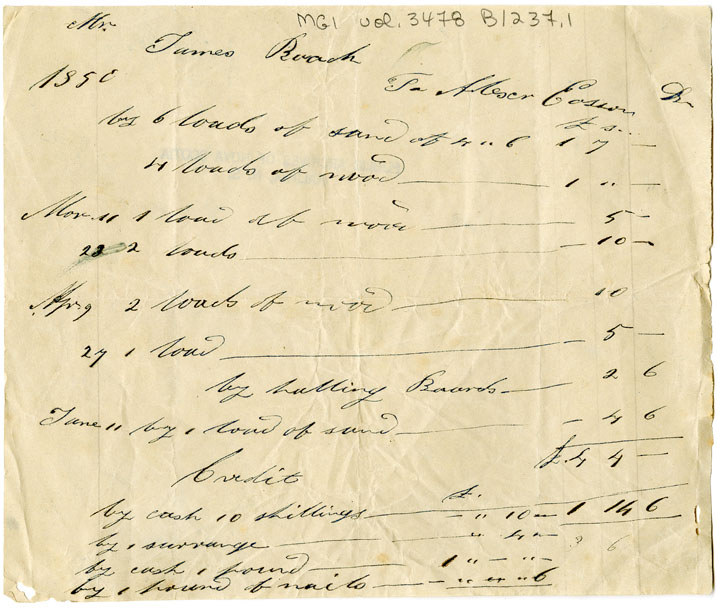 MG1 vol. 3478 B/237.1
Mr.
James Roach
1850 To Alexr Cosson Dr
£ s..
by 6 loads of sand at 4 " 6 1 7 —
4 loads of wood — 1 " —
Mar 11 1 load of wood — 5 —
23 2 loads — 10 —
Apr 9 2 loads of wood — 10
27 1 load — 5 —
by halling Boards — 2 6
June 11 by 1 load of sand — 4 6
£. 4 4 —
Credit
£.
by cash 10 shillings — " 10 — 1 14 6
by 1 — " 4 — 6
by cash 1 pound — 1 " — "
by 1 pound of nails — " " " 6